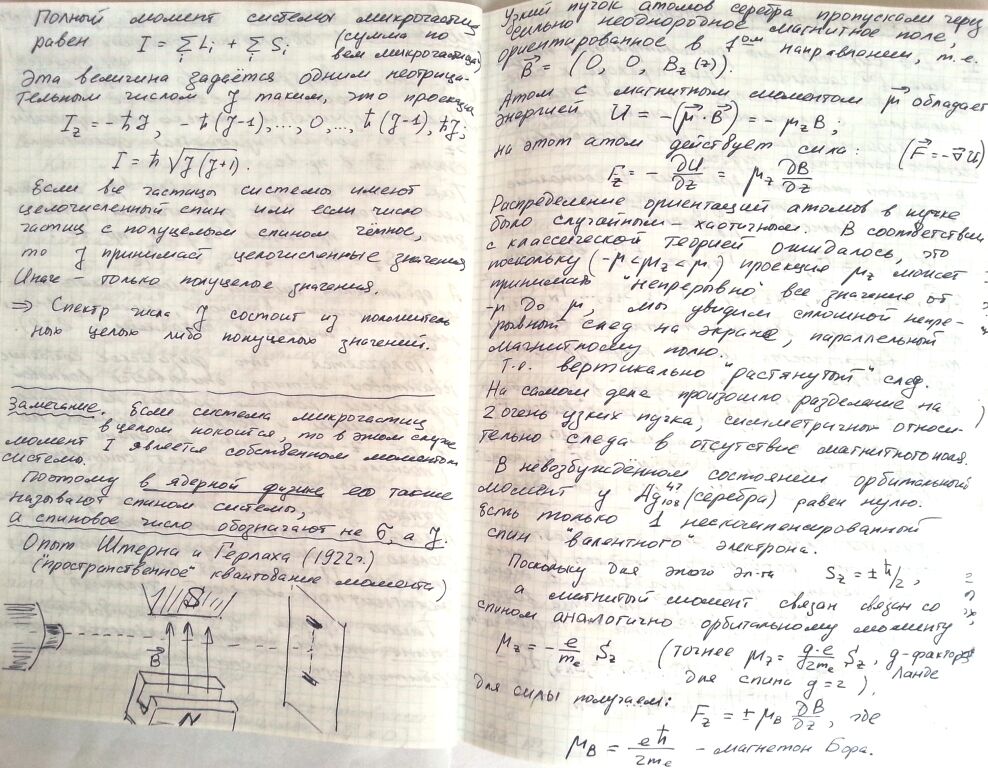 Полный момент системы микрочастиц
равен I = Σᵢ Lᵢ + Σᵢ Sᵢ (сумма по
всем микрочастиц)
Эта величина задаётся одним неотрица-
тельным числом J таким, что проекция
I_z = -ħJ, -ħ(J-1), ..., 0, ..., ħ(J-1), ħJ;
I = ħ √(J(J+1)).
Если все частицы системы имеют
целочисленный спин или если число
частиц с полуцелым спином чётное,
то J принимает целочисленные значения
Иначе - только полуцелые значения.
⇒ Спектр числа J состоит из положитель
ных целых либо полуцелых значений.
Замечание. Если система микрочастиц
в целом покоится, то в этом случае
момент I является собственным моментом
системы.
Поэтому в ядерной физике его также
называют спином системы,
а спиновое число обозначают не S, а J.
Опыт Штерна и Герлаха (1922г.)
("пространственное" квантование момента)
S
B⃗
N
Узкий пучок атомов серебра пропускали через
сильно неоднородное магнитное поле,
ориентированное в 1ом направлении, т.е.
B⃗ = (0, 0, B_z(z)).
Атом с магнитным моментом μ⃗ обладает
энергией U = -(μ⃗·B⃗) = -μ_z B;
на этот атом действует сила: (F⃗ = -∇⃗U)
F_z = -∂U/∂z = μ_z ∂B/∂z
Распределение ориентаций атомов в пучке
было случайным - хаотичным. В соответствии
с классической теорией ожидалось, что
поскольку (-μ<μ_z<μ) проекция μ_z может
принимать "непрерывно" все значение от
-μ до μ, мы увидим сплошной непре-
рывный след на экране, параллельный
магнитному полю.
Т.е. вертикально "растянутый" след.
На самом деле произошло разделение на
2 очень узких пучка, симметричных относи-
тельно следа в отсутствие магнитного поля.
В невозбуждённом состоянии орбитальный
момент у Ag⁴⁷₁₀₈ (серебра) равен нулю.
Есть только 1 нескомпенсированный
спин "валентного" электрона.
Поскольку для этого эл-на S_z = ±ħ/2,
а магнитный момент связан связан со
спином аналогично орбитальному моменту
μ_z = -e/m_e S_z (точнее μ_z = g·e/2m_e S_z, g-фактор
Ланде
для спина g=2),
Для силы получаем:
F_z = ±μ_B ∂B/∂z, где
μ_B = eħ/2m_e - магнетон Бора.